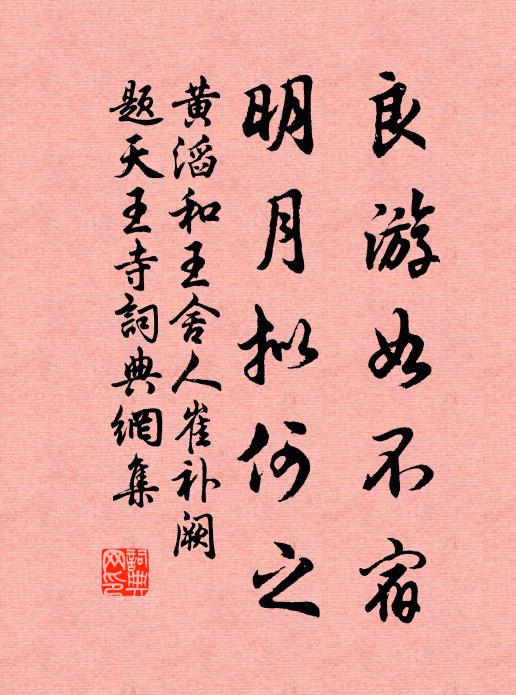 良游如不宿
明月拟何之
黄滔和王舍人崔补阙
题天王寺詞典網集
詞典網印